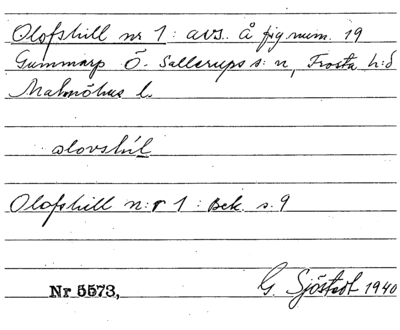 Olofshill nr 1: avs. å fig num. 19
Gummarp Ö. Sallerups s:n, Frosta h:d
Malmöhus l.
olovshíl
Olofshill n:r 1: Bek. s. 9
Nr 5573, G. Sjöstedt 1940